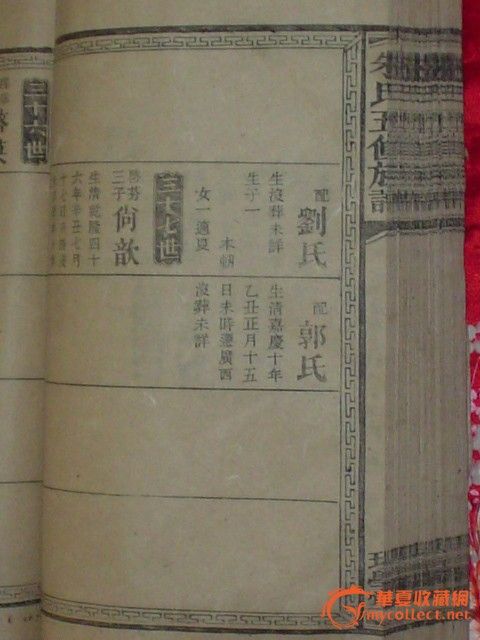 朱氏五修族譜
配
劉氏
生沒葬未詳
生子一
本朝
女一適夏
三十七世
三子
尙歆
生清乾隆四十
六年辛丑七月
配
郭氏
生清嘉慶十年
乙丑正月十五
日未時遷廣西
沒葬未詳
三十六世
華夏收藏網
mycollect.net